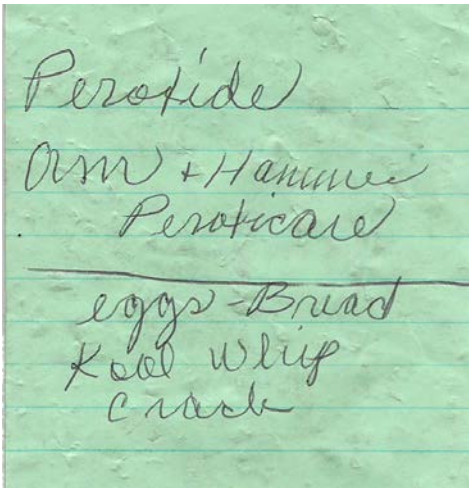 Peroxide
Arm + Hammer
Peroxicare
eggs - Bread
Kool Whip
Crack